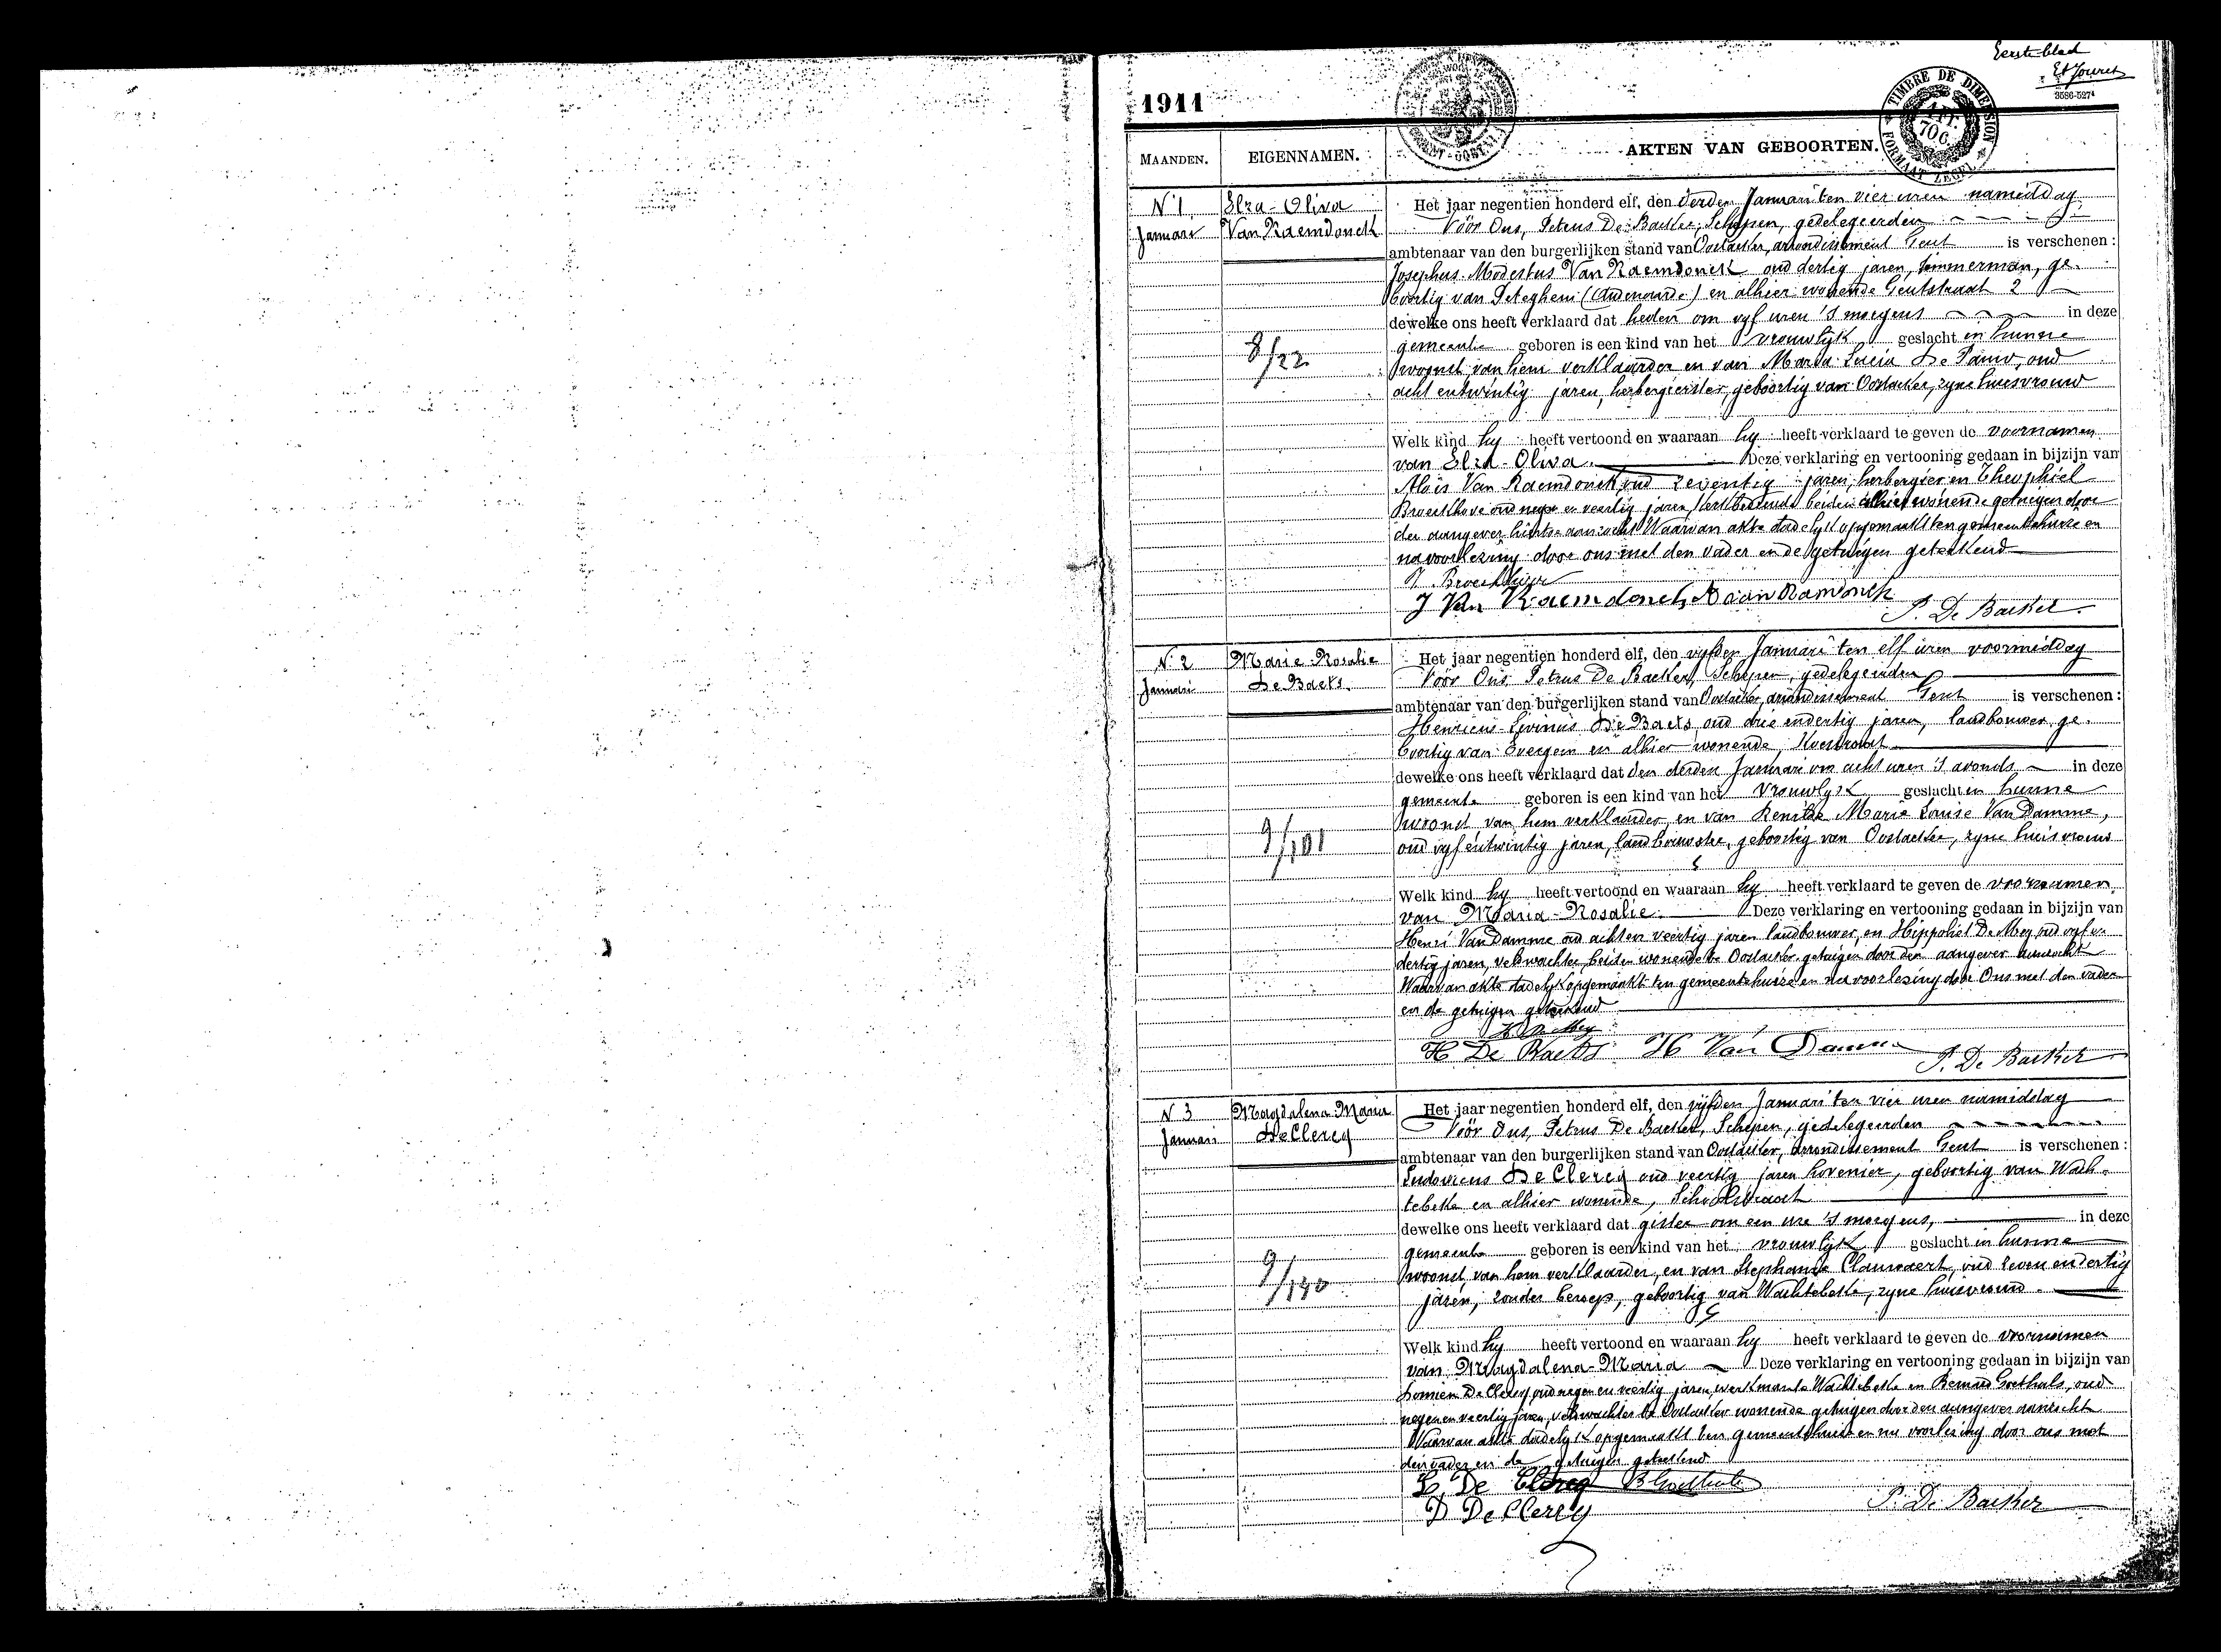 Eerste blad
1911
TIMBRE DE DIMENSION
70 C.
FORMAAT ZEGEL
MAANDEN.
EIGENNAMEN.
AKTEN VAN GEBOORTEN.
N 1
Januari
Elza-Oliva
Van Raemdonck
8/22
Het jaar negentien honderd elf, den derden Januari ten vier uren namiddag
Vóór Ons, Petrus De Backer, Schepen, gedelegeerden
ambtenaar van den burgerlijken stand van Oostacker, arrondissement Gent is verschenen:
Josephus-Modestus Van Raemdonck oud dertig jaren, timmerman, ge-
boortig van Peteghem (Audenarde) en alhier wonende Gentstraat 2
dewelke ons heeft verklaard dat heden om vyf uren 's morgens in deze
gemeente geboren is een kind van het vrouwlyk geslacht in hunne
woonst van hem verklaarder en van Maria Lucia De Pauw, oud
acht entwintig jaren, herbergierster, geboortig van Oostacker, zyne huisvrouw
Welk kind hy heeft vertoond en waaraan hy heeft verklaard te geven de voornamen
van Elza-Oliva. Deze verklaring en vertooning gedaan in bijzijn van
Alois Van Raemdonck oud zeventig jaren, herbergier en Theophiel
Broeckhove oud negen en veertig jaren, beiden alhier wonende getuigen door
den aangever hiertoe aanzocht Waarvan akte dadelyk opgemaakt ten gemeentehuize en
na voorlezing door ons met den vader en de getuigen geteekend
T. Broeckhove
J Van Raemdonck A van Ramdonck
P. De Backer
N. 2
Januari
Marie Rosalie
De Baets.
9/101
Het jaar negentien honderd elf, den vyfden Januari ten elf uren voormiddag
Vóór Ons, Petrus De Backer, Schepen, gedelegeerden
ambtenaar van den burgerlijken stand van Oostacker, arrondissement Gent is verschenen:
Henricus-Livinus De Baets, oud drie endertig jaren, landbouwer, ge-
boortig van Evergem en alhier wonende,
dewelke ons heeft verklaard dat den derden Januari om acht uren 's avonds in deze
gemeente geboren is een kind van het vrouwlyk geslacht in hunne
woonst van hem verklaarder, en van Marie Louise Van Damme,
oud vyf entwintig jaren, landbouwster, geboortig van Oostacker, zyne huisvrouw
Welk kind hy heeft vertoond en waaraan hy heeft verklaard te geven de voornamen
van Maria-Rosalie. Deze verklaring en vertooning gedaan in bijzijn van
Henri Van Damme oud achten veertig jaren landbouwer, en Hippoliet De Mey oud vyf en
dertig jaren, veldwachter, beiden wonende te Oostacker getuigen door den aangever aanzocht
Waarvan akte dadelyk opgemaakt ten gemeentehuize en na voorlezing door Ons met den vader
en de getuigen geteekend
H De Mey
H De Baets H Van Damme
P. De Backer
N 3
Januari
Magdalena Maria
De Clercq
9/130
Het jaar negentien honderd elf, den vyfden Januari ten vier uren namiddag
Vóór Ons, Petrus De Backer, Schepen, gedelegeerden
ambtenaar van den burgerlijken stand van Oostacker, arrondissement Gent is verschenen:
Ludovicus De Clercq oud veertig jaren hovenier, geboortig van Wach-
tebeke en alhier wonende, Schoolstraat
dewelke ons heeft verklaard dat gister om een ure 's morgens, in deze
gemeente geboren is een kind van het vrouwlyk geslacht in hunne
woonst van hem verklaarder, en van Stephanie Clauwaert, oud zeven endertig
jaren, zonder beroep, geboortig van Wachtebeke, zyne huisvrouw.
Welk kind hy heeft vertoond en waaraan hy heeft verklaard te geven de voornamen
van Magdalena-Maria Deze verklaring en vertooning gedaan in bijzijn van
De Clercq, oud negen en veertig jaren, werkman te Wachtebeke en Bernard Goethals, oud
negen en veertig jaren, veldwachter te Oostacker wonende getuigen door den aangever aanzocht
Waarvan akte dadelyk opgemaakt ten gemeentehuize en na voorlezing door ons met
den vader en de getuigen geteekend
L. De Clercq B Goethals
D De Clercq
P. De Backer